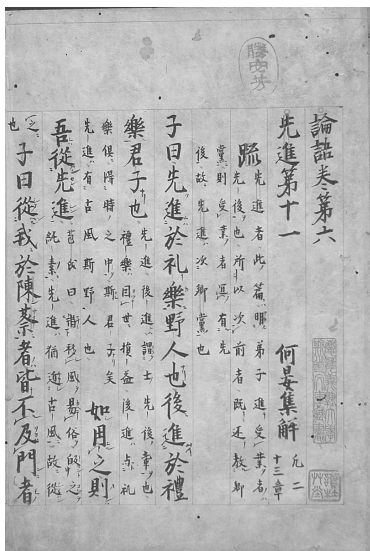 論語卷第六
先進第十一 何晏集解 凡二十三章
疏 先進者此篇明弟子進受業者
先後也所以次前者既還教鄉
黨則受業者冝有先
後故先進次鄉黨也
子曰先進於礼樂野人也後進於禮
樂君子也 先進後進謂士先後軰也
禮樂因世損益後進与礼
樂俱得時之中斯君子矣
先進有古風斯野人也 如用之則
吾從先進 苞氏曰將移風易俗歸之
既素先進猶近古風故從
之 子曰從我於陳蔡者皆不及門者
也